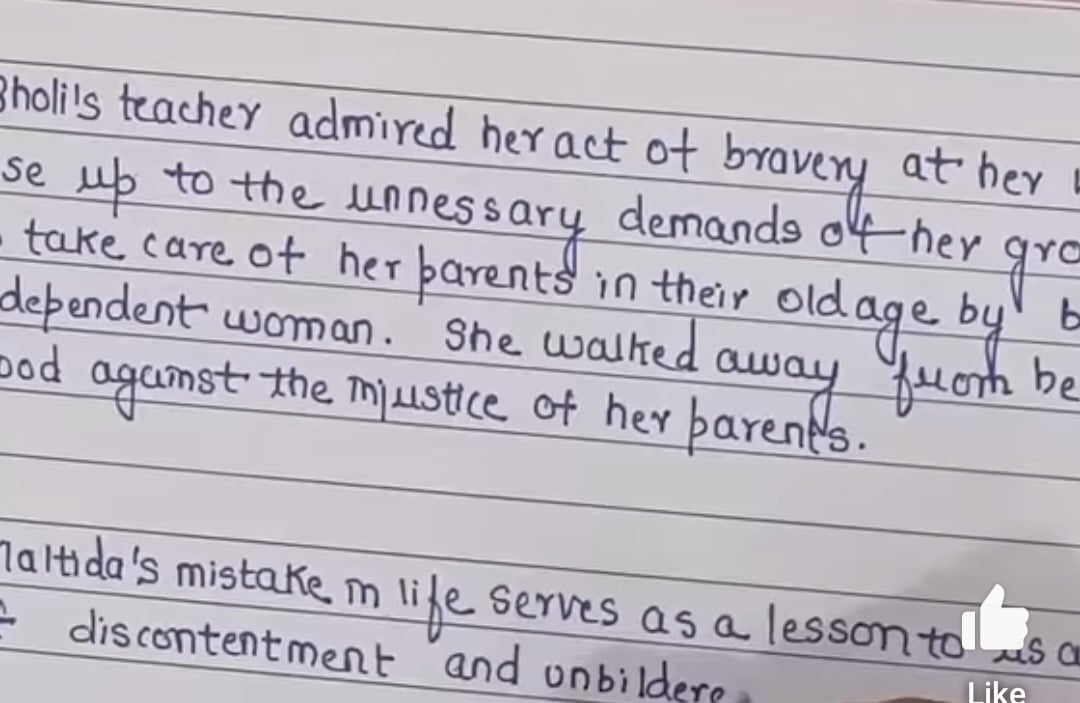 Bholi's teacher admired her act of bravery at her
se up to the unnessary demands of her gro
take care of her parents in their old age by b
dependent woman. She walked away from be
ood against the injustice of her parents.
Maltida's mistake in life serves as a lesson to us a
discontentment and
Like